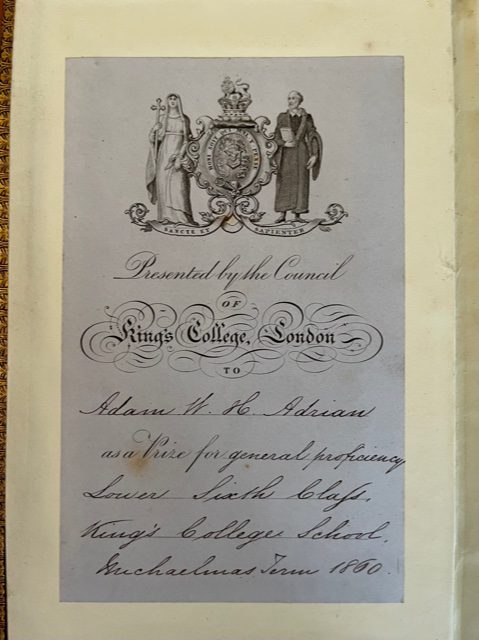 HONI SOIT QUI MAL Y PENSE
SANCTE ET SAPIENTER
Presented by the Council
OF
King's College, London
TO
Adam W. H. Adrian
as a Prize for general proficiency
Lower Sixth Claſs.
King's College School.
Michaelmas Term 1860.